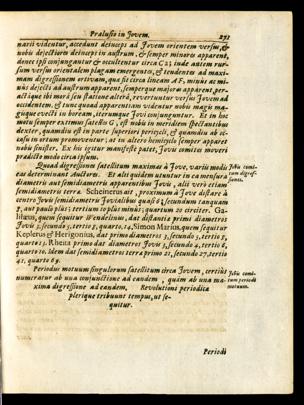 Prælusio in Jovem. 251
narii videntur, accedunt deinceps ad Jovem orientem versus, &
nobis dejectiores deinceps in austrum, & semper minores apparent,
donec ipsi conjungantur & occultentur circa C 23 inde autem rur-
sum versus orientalem plagam emergentes, & tendentes ad maxi-
mam digressionem ortivam, qua sit circa locum A F, minus ac mi-
nus dejecti ad austrum apparent, semperque majores apparent, per-
actique ibi mora seu statione altera, revertuntur versus Jovem ad
occidentem, & tunc quoad apparentiam videntur nobis magis ma-
gisque evecti in boream, iterumque Jovi conjunguntur. Et in hoc
motu semper extimus satelles G, est nobis in meridiem spectantibus
dexter, quamdiu est in parte superiori perigæi, & quamdiu ab oc-
casu in ortum promoventur; at in altero hemicyclo semper apparet
nobis sinister. Ex his igitur manifestè patet, Jovis comites moveri
prædicto modo circa ipsum.
Quoad digressiones satellitum maximas à Jove, variis modis
eas determinant Auctores. Et alii quidem utuntur in ea mensura
diametri aut semidiametri apparentibus Jovis, alii verò etiam
semidiametris terræ. Scheinerus ait, proximum à Jove distare à
centro Jovis semidiametris Jovialibus quasi 6; secundum tanquam
9, aut paulò plus; tertium 10 plus minùs; quartum 20 circiter. Ga-
lilæum, quem sequitur Wendelinus, dat distantiis primi diametros
Jovis 3; secundo 5; tertio 8; quarto 14. Simon Marius, quem sequitur
Keplerus & Herigonius, dat primo diametros 3, secundo 5, tertio 8,
quarto 13. Rheita primo dat diametros Jovis 3, secundo 4, tertio 6,
quarto 10. Idem dat semidiametros terra primo 21, secundo 27, tertio
41, quarto 69.
Periodus motuum singulorum satellitum circa Jovem, certiùs
numeratur ab una conjunctione ad eandem, quàm ab una ma-
xima digressione ad eandem. Revolutioni periodica
plerique tribuunt tempus, ut se-
quitur.
Jovis comi-
tum digres-
siones.
Jovis comi-
tum periodi
motuum.
Periodi